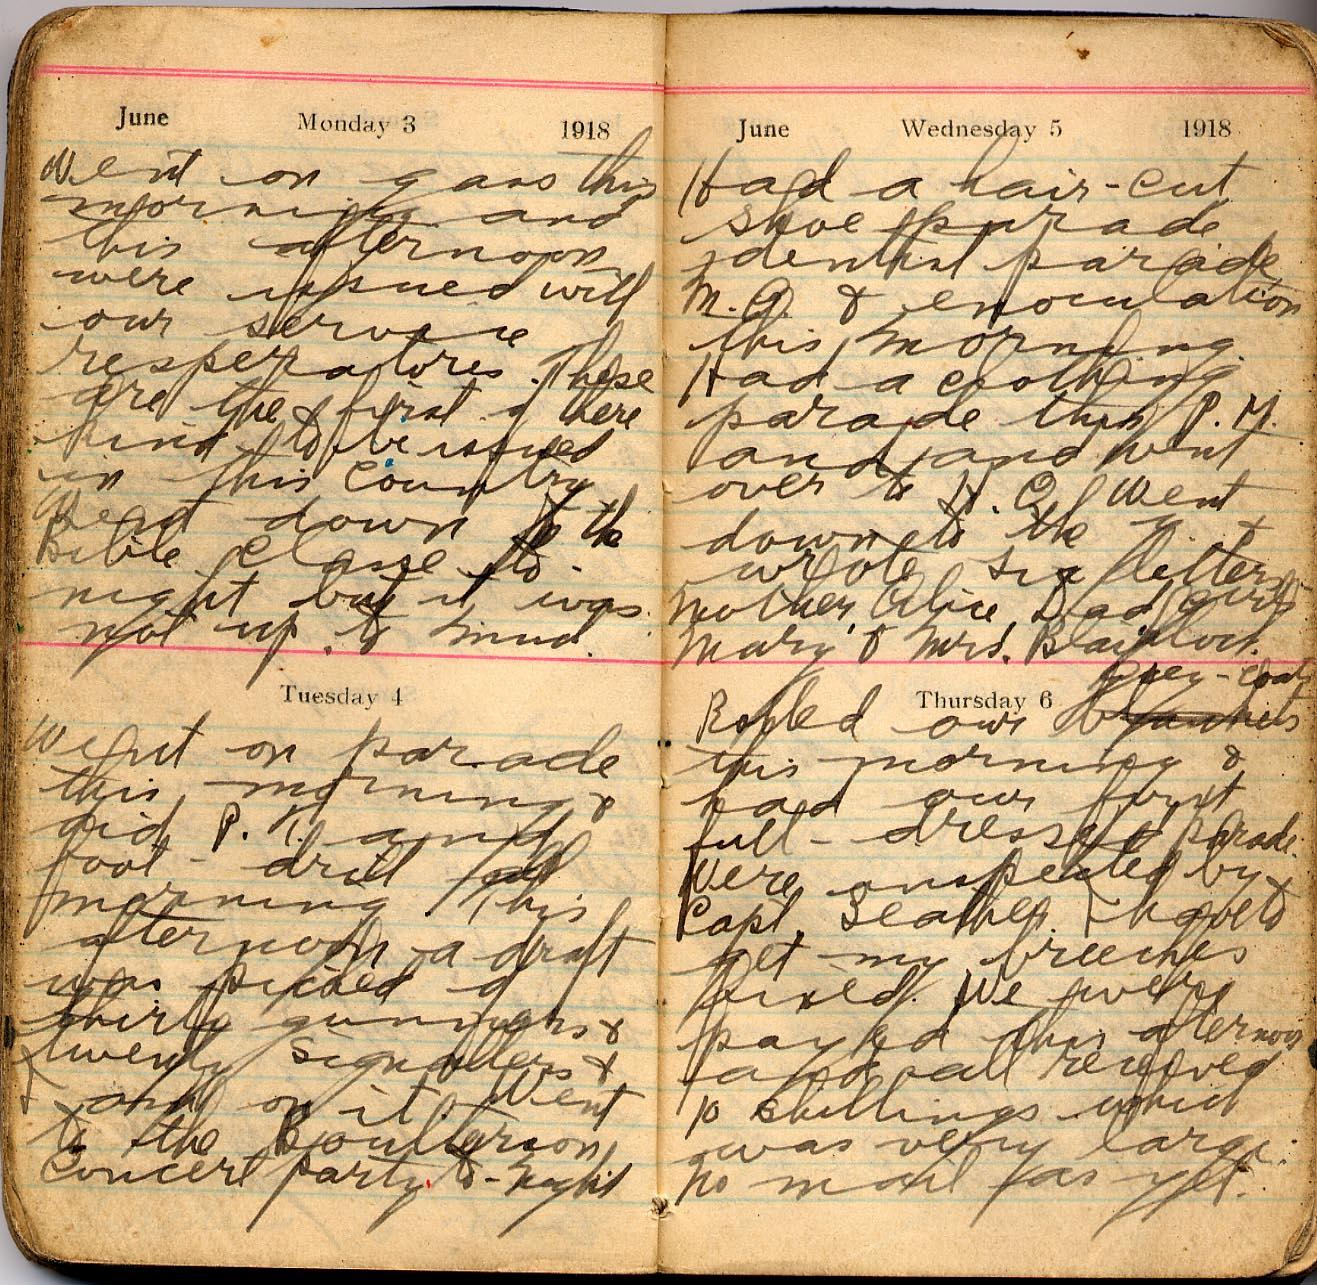 June Monday 3 1918
Went on gass this
morning and
this afternoon
were issued with
our service
resperatores. These
are the first of there
kind to be issued
in this country
Went down to the
Bible Classe to-
night but it was
not up to mind.
Tuesday 4
Went on parade
this morning &
did P. T. and
foot-drill all
morning This
afternoon a draft
was picked of
thirty gunners &
twenty signallers &
I and on it. Went
to the Boulterson
Concert party to-night
June Wednesday 5 1918
Had a hair-cut
shoe parade
dentist parade
M.O. & enoculation
this morning.
Had a clothing
parade this P.M.
and and went
over to H.Q. Went
down to the Y. &
wrote six letters
Mother, Alice, Dad, Gurt
Mary & Mrs. Blaylock.
Thursday 6
grey-coats
Rolled our
this morning &
had our first
full-dress parade.
Were onspected by
Capt. I have to
get my breeches
fixed. We were
payed this afternoon
and all received
10 shillings which
was very large.
No mail as yet.